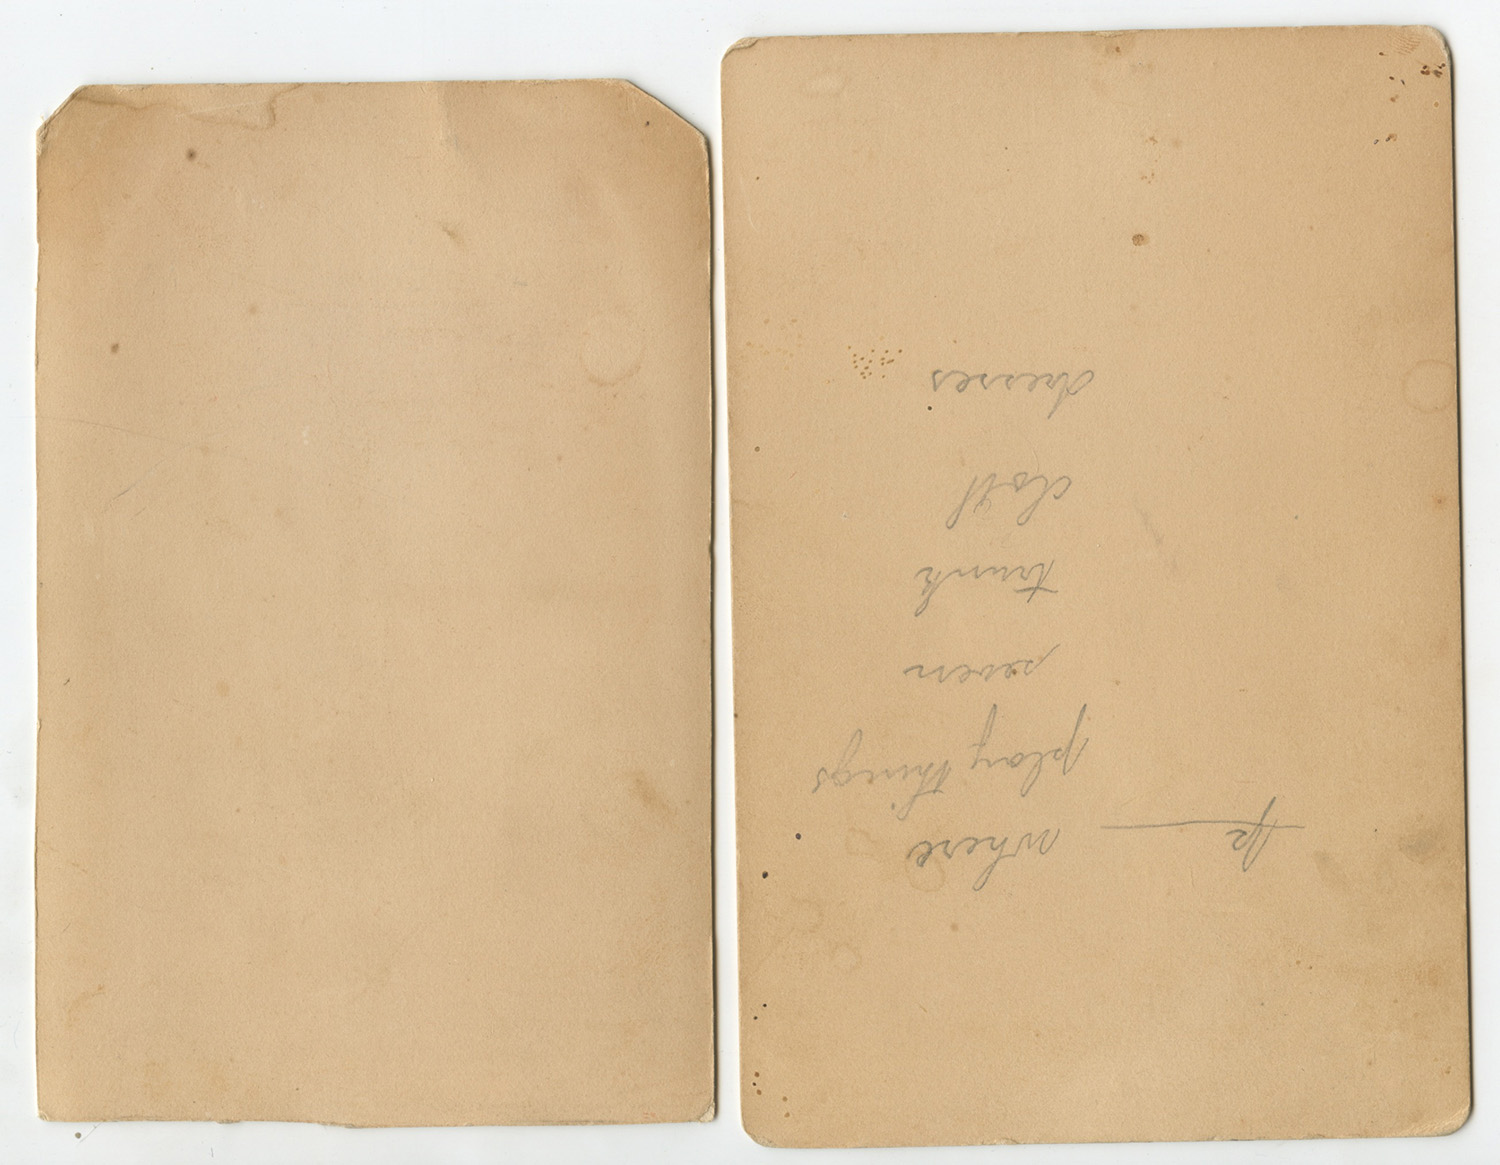 where
play things
seven
trunk
doll
dresses